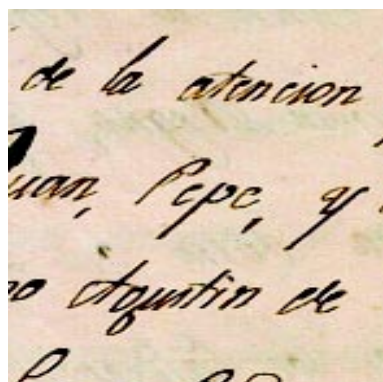 de la atencion
Juan, Pepe, y
Agustin de